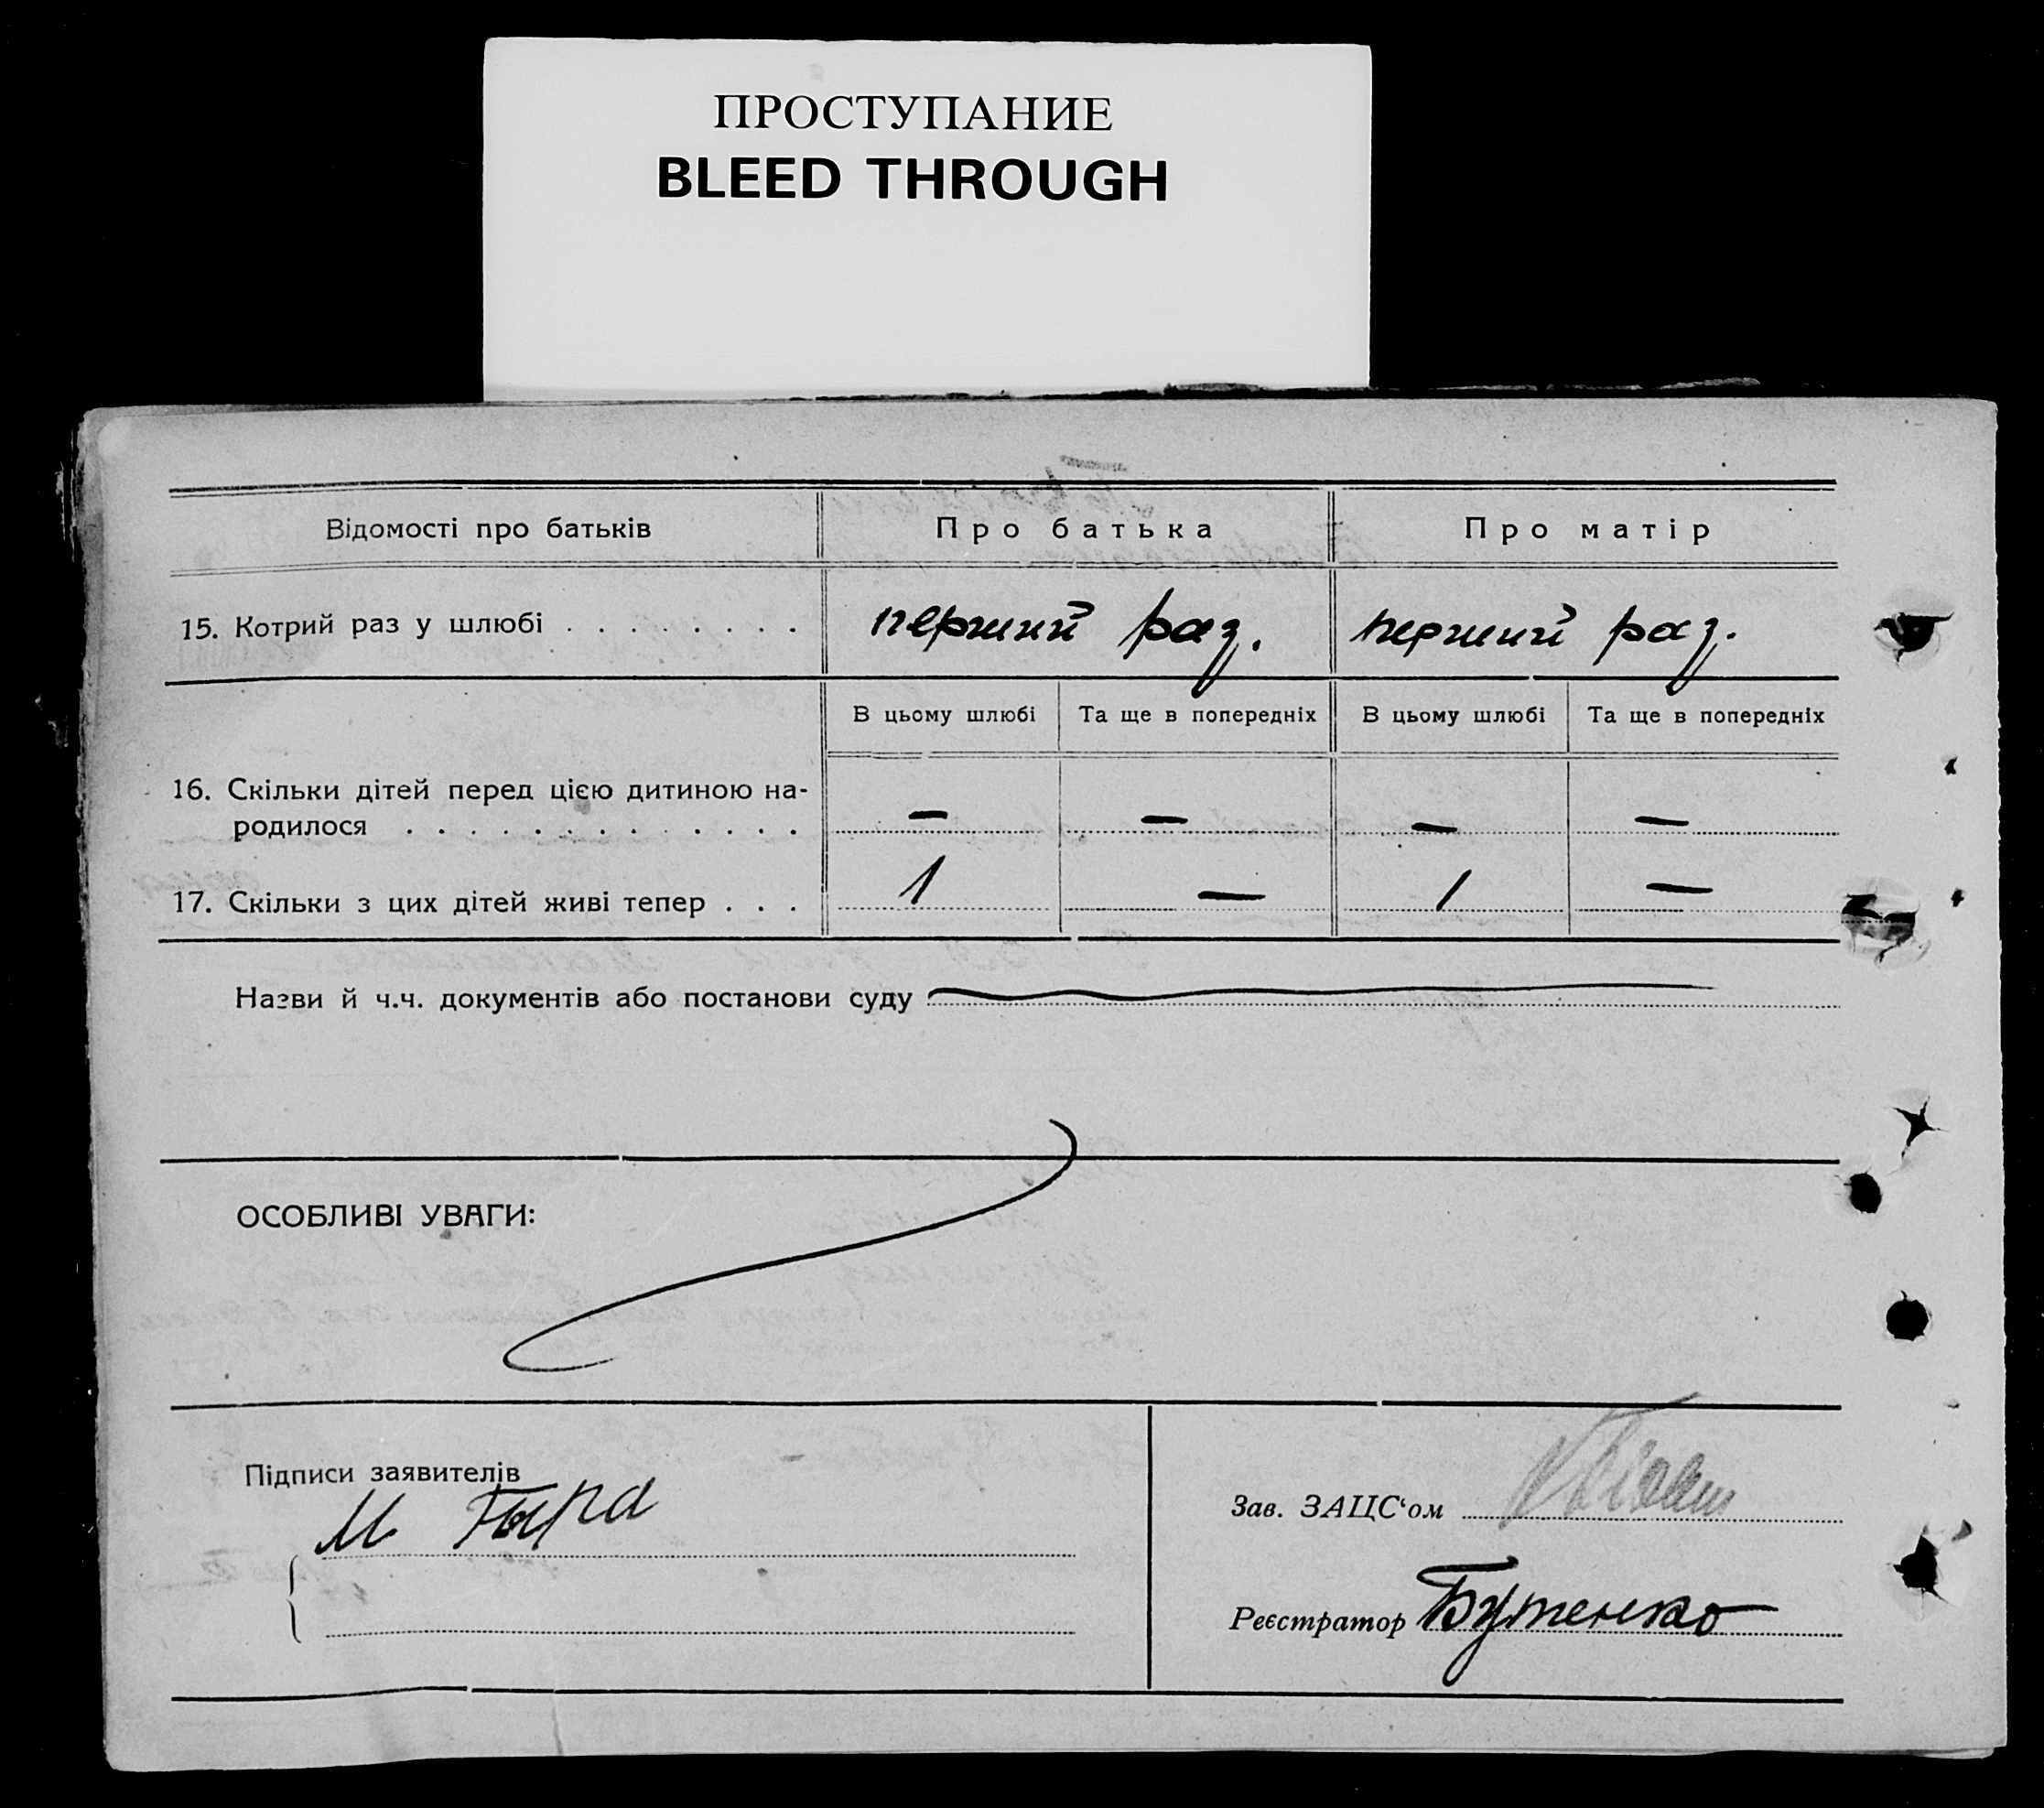 ПРОСТУПАНИЕ
BLEED THROUGH
Відомості про батьків Про батька Про матір
15. Котрий раз у шлюбі . . . . . . . . перший раз. перший раз.
В цьому шлюбі Та ще в попередніх В цьому шлюбі Та ще в попередніх
16. Скільки дітей перед цією дитиною на-
родилося . . . . . . . . . . . . . — — — —
17. Скільки з цих дітей живі тепер . . . 1 — 1 —
Назви й ч.ч. документів або постанови суду
ОСОБЛИВІ УВАГИ:
Підписи заявителів
М.
Зав. ЗАЦС‘ом
Реєстратор Бутенко